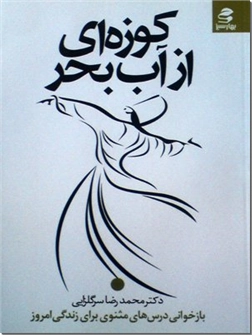 کوزه‌ای
از آب بحر
بهار سبز
دکتر محمدرضا سرگلزایی
بازخوانی درس‌های مثنوی برای زندگی امروز